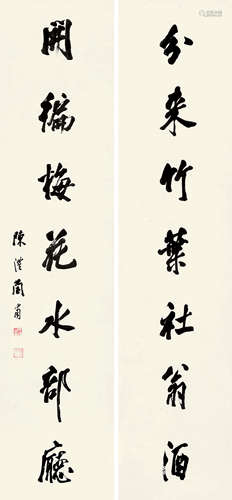 分来竹葉社翁酒
開徧梅花水部廳
陳澧蘭甫